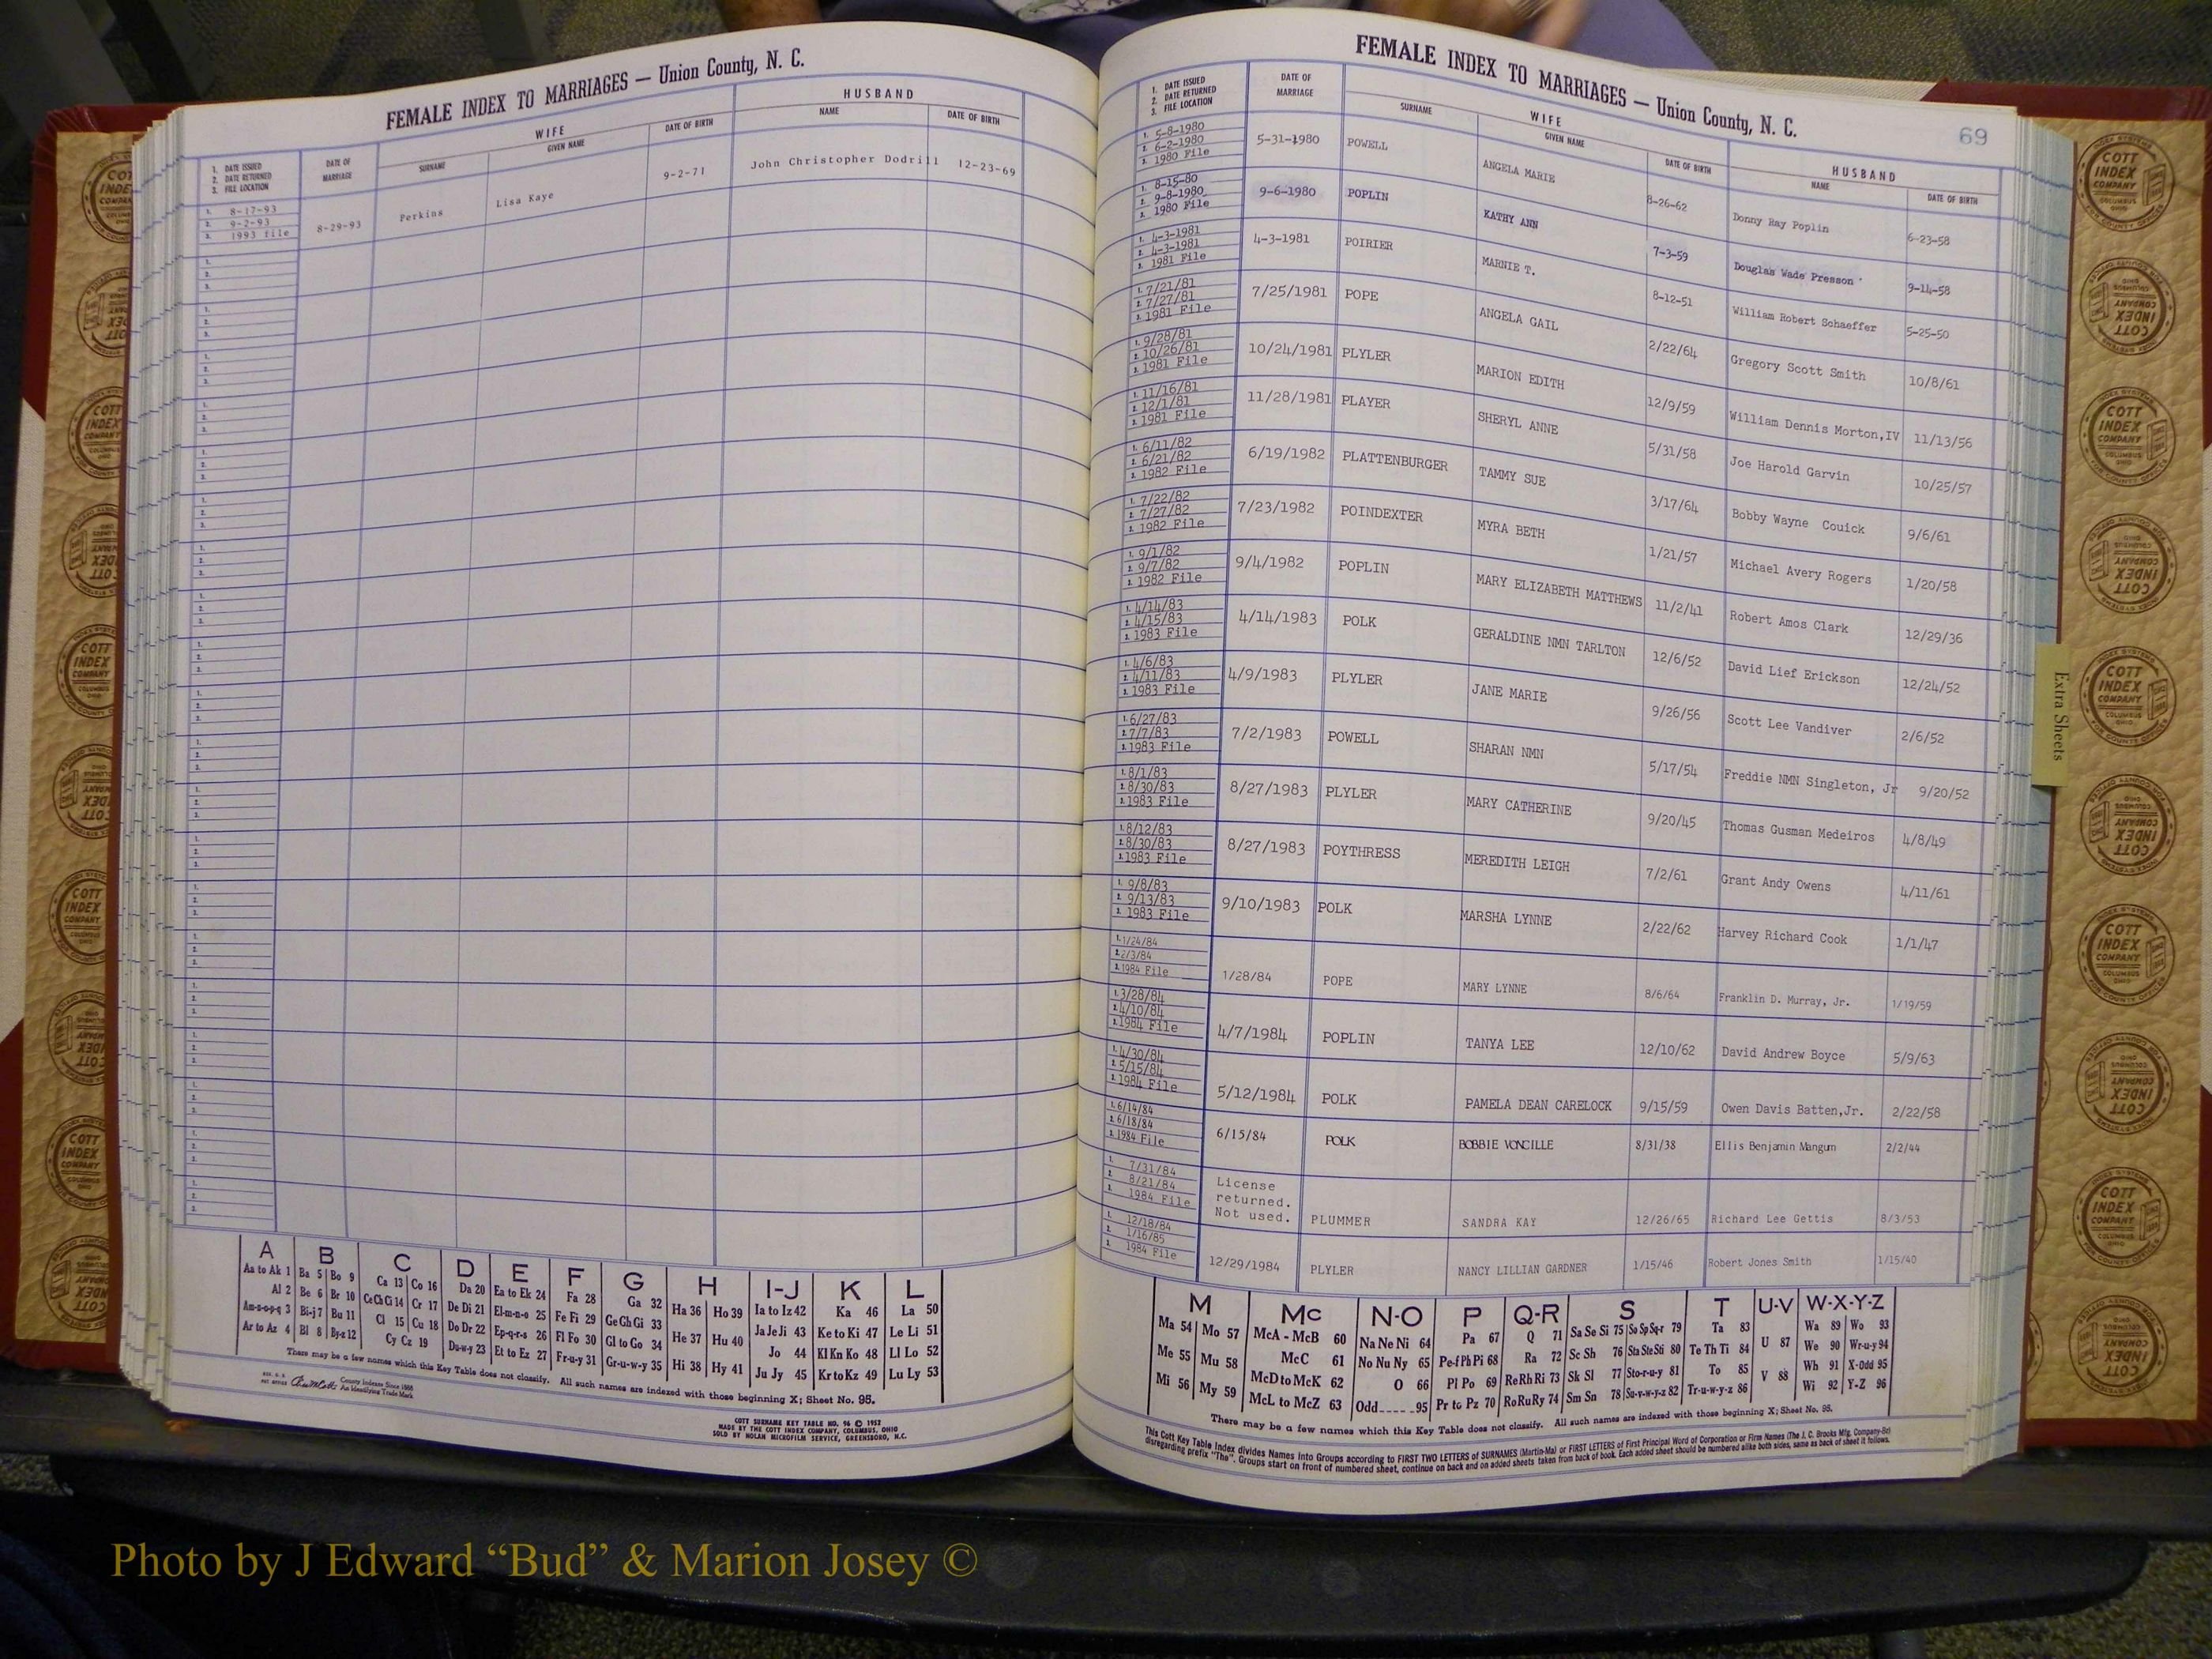 FEMALE INDEX TO MARRIAGES — Union County, N. C.
1. DATE ISSUED
2. DATE RETURNED
3. FILE LOCATION
DATE OF MARRIAGE
WIFE
SURNAME GIVEN NAME DATE OF BIRTH
HUSBAND
NAME DATE OF BIRTH
1. 8-17-93
2. 9-2-93
3. 1993 file
8-29-93 Perkins Lisa Kaye 9-2-71 John Christopher Dodrill 12-23-69
A B C D E F G H I-J K L
Aa to Ak 1 Ba 5 Bo 9 Ca 13 Co 16 Da 20 Ea to Ek 24 Fa 28 Ga 32 Ha 36 Ho 39 Ia to Iz 42 Ka 46 La 50
Al 2 Be 6 Br 10 Ce Ch Ci 14 Cr 17 De Di 21 El-m-n-o 25 Fe Fi 29 Ge Gh Gi 33 Ja Je Ji 43 Ke to Ki 47 Le Li 51
Am-n-o-p-q 3 Bi-j 7 Bu 11 Cl 15 Cu 18 Do Dr 22 Ep-q-r-s 26 Fl Fo 30 Gl to Go 34 He 37 Hu 40 Jo 44 Kl Kn Ko 48 Ll Lo 52
Ar to Az 4 Bl 8 By-z 12 Cy Cz 19 Du-w-y 23 Et to Ez 27 Fr-u-y 31 Gr-u-w-y 35 Hi 38 Hy 41 Ju Jy 45 Kr to Kz 49 Lu Ly 53
There may be a few names which this Key Table does not classify. All such names are indexed with those beginning X; Sheet No. 95.
County Indexes Since 1888
An Identifying Trade Mark
COTT SURNAME KEY TABLE NO. 96 © 1952
MADE BY THE COTT INDEX COMPANY, COLUMBUS, OHIO
SOLD BY NOLAN MICROFILM SERVICE, GREENSBORO, N.C.
FEMALE INDEX TO MARRIAGES — Union County, N. C.
69
1. DATE ISSUED
2. DATE RETURNED
3. FILE LOCATION
DATE OF MARRIAGE
WIFE
SURNAME GIVEN NAME DATE OF BIRTH
HUSBAND
NAME DATE OF BIRTH
1. 5-8-1980
2. 6-2-1980
3. 1980 File
5-31-1980 POWELL ANGELA MARIE 8-26-62 Donny Ray Poplin 6-23-58
1. 8-15-80
2. 9-8-1980
3. 1980 File
9-6-1980 POPLIN KATHY ANN 7-3-59 Douglas Wade Presson 9-14-58
1. 4-3-1981
2. 4-3-1981
3. 1981 File
4-3-1981 POIRIER MARNIE T. 8-12-51 William Robert Schaeffer 5-25-50
1. 7/21/81
2. 7/27/81
3. 1981 File
7/25/1981 POPE ANGELA GAIL 2/22/64 Gregory Scott Smith 10/8/61
1. 9/28/81
2. 10/26/81
3. 1981 File
10/24/1981 PLYLER MARION EDITH 12/9/59 William Dennis Morton,IV 11/13/56
1. 11/16/81
2. 12/1/81
3. 1981 File
11/28/1981 PLAYER SHERYL ANNE 5/31/58 Joe Harold Garvin 10/25/57
1. 6/11/82
2. 6/21/82
3. 1982 File
6/19/1982 PLATTENBURGER TAMMY SUE 3/17/64 Bobby Wayne Couick 9/6/61
1. 7/22/82
2. 7/27/82
3. 1982 File
7/23/1982 POINDEXTER MYRA BETH 1/21/57 Michael Avery Rogers 1/20/58
1. 9/1/82
2. 9/7/82
3. 1982 File
9/4/1982 POPLIN MARY ELIZABETH MATTHEWS 11/2/41 Robert Amos Clark 12/29/36
1. 4/14/83
2. 4/15/83
3. 1983 File
4/14/1983 POLK GERALDINE NMN TARLTON 12/6/52 David Lief Erickson 12/24/52
1. 4/6/83
2. 4/11/83
3. 1983 File
4/9/1983 PLYLER JANE MARIE 9/26/56 Scott Lee Vandiver 2/6/52
1. 6/27/83
2. 7/7/83
3. 1983 File
7/2/1983 POWELL SHARAN NMN 5/17/54 Freddie NMN Singleton, Jr 9/20/52
1. 8/1/83
2. 8/30/83
3. 1983 File
8/27/1983 PLYLER MARY CATHERINE 9/20/45 Thomas Gusman Medeiros 4/8/49
1. 8/12/83
2. 8/30/83
3. 1983 File
8/27/1983 POYTHRESS MEREDITH LEIGH 7/2/61 Grant Andy Owens 4/11/61
1. 9/8/83
2. 9/13/83
3. 1983 File
9/10/1983 POLK MARSHA LYNNE 2/22/62 Harvey Richard Cook 1/1/47
1. 1/24/84
2. 2/3/84
3. 1984 File
1/28/84 POPE MARY LYNNE 8/6/64 Franklin D. Murray, Jr. 1/19/59
1. 3/28/84
2. 4/10/84
3. 1984 File
4/7/1984 POPLIN TANYA LEE 12/10/62 David Andrew Boyce 5/9/63
1. 4/30/84
2. 5/15/84
3. 1984 File
5/12/1984 POLK PAMELA DEAN CARELOCK 9/15/59 Owen Davis Batten,Jr. 2/22/58
1. 6/14/84
2. 6/18/84
3. 1984 File
6/15/84 POLK BOBBIE VONCILLE 8/31/38 Ellis Benjamin Mangum 2/2/44
1. 7/31/84
2. 8/21/84
3. 1984 File
License
returned.
Not used. PLUMMER SANDRA KAY 12/26/65 Richard Lee Gettis 8/3/53
1. 12/18/84
2. 1/16/85
3. 1984 File
12/29/1984 PLYLER NANCY LILLIAN GARDNER 1/15/46 Robert Jones Smith 1/15/40
M Mc N-O P Q-R S T U-V W-X-Y-Z
Ma 54 Mo 57 McA - McB 60 Na Ne Ni 64 Pa 67 Q 71 Sa Se Si 75 So Sp Sq-r 79 Ta 83 Wa 89 Wo 93
Me 55 Mu 58 McC 61 No Nu Ny 65 Pe-f Ph Pi 68 Ra 72 Sc Sh 76 Sta Ste Sti 80 Te Th Ti 84 U 87 We 90 Wr-u-y 94
McD to McK 62 O 66 Pl Po 69 Re Rh Ri 73 Sk Sl 77 Sto-r-u-y 81 To 85 Wh 91 X-Odd 95
Mi 56 My 59 McL to McZ 63 Odd 95 Pr to Pz 70 Ro Ru Ry 74 Sm Sn 78 Su-v-w-y-z 82 Tr-u-w-y-z 86 V 88 Wi 92 Y-Z 96
There may be a few names which this Key Table does not classify. All such names are indexed with those beginning X; Sheet No. 95.
This Cott Key Table Index divides Names into Groups according to FIRST TWO LETTERS of SURNAMES (Martin-Ma) or FIRST LETTERS of First Principal Word of Corporation or Firm Names (The J. C. Brooks Mfg. Company-Br)
disregarding prefix "The". Groups start on front of numbered sheet, continue on back and on added sheets taken from back of book. Each added sheet should be numbered alike both sides, same as back of sheet it follows.
Extra Sheets
COTT
INDEX
COMPANY
COLUMBUS
OHIO
Photo by J Edward “Bud” & Marion Josey ©